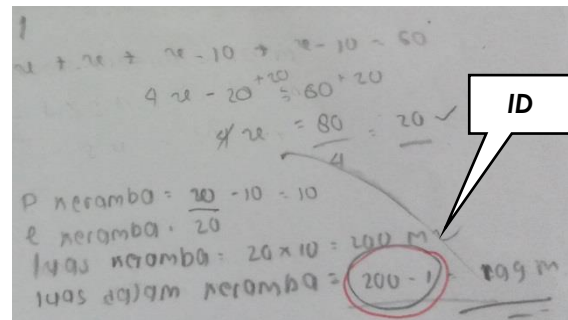 1
x + x + x - 10 + x - 10 = 60
4x - 20 +20 = 60 + 20
4x = 80/4 = 20 ✓
ID
P neramba = 20 - 10 = 10
l neramba = 20
luas neramba = 20 x 10 = 200 m
luas dalam neramba = 200 - 1 = 199 m